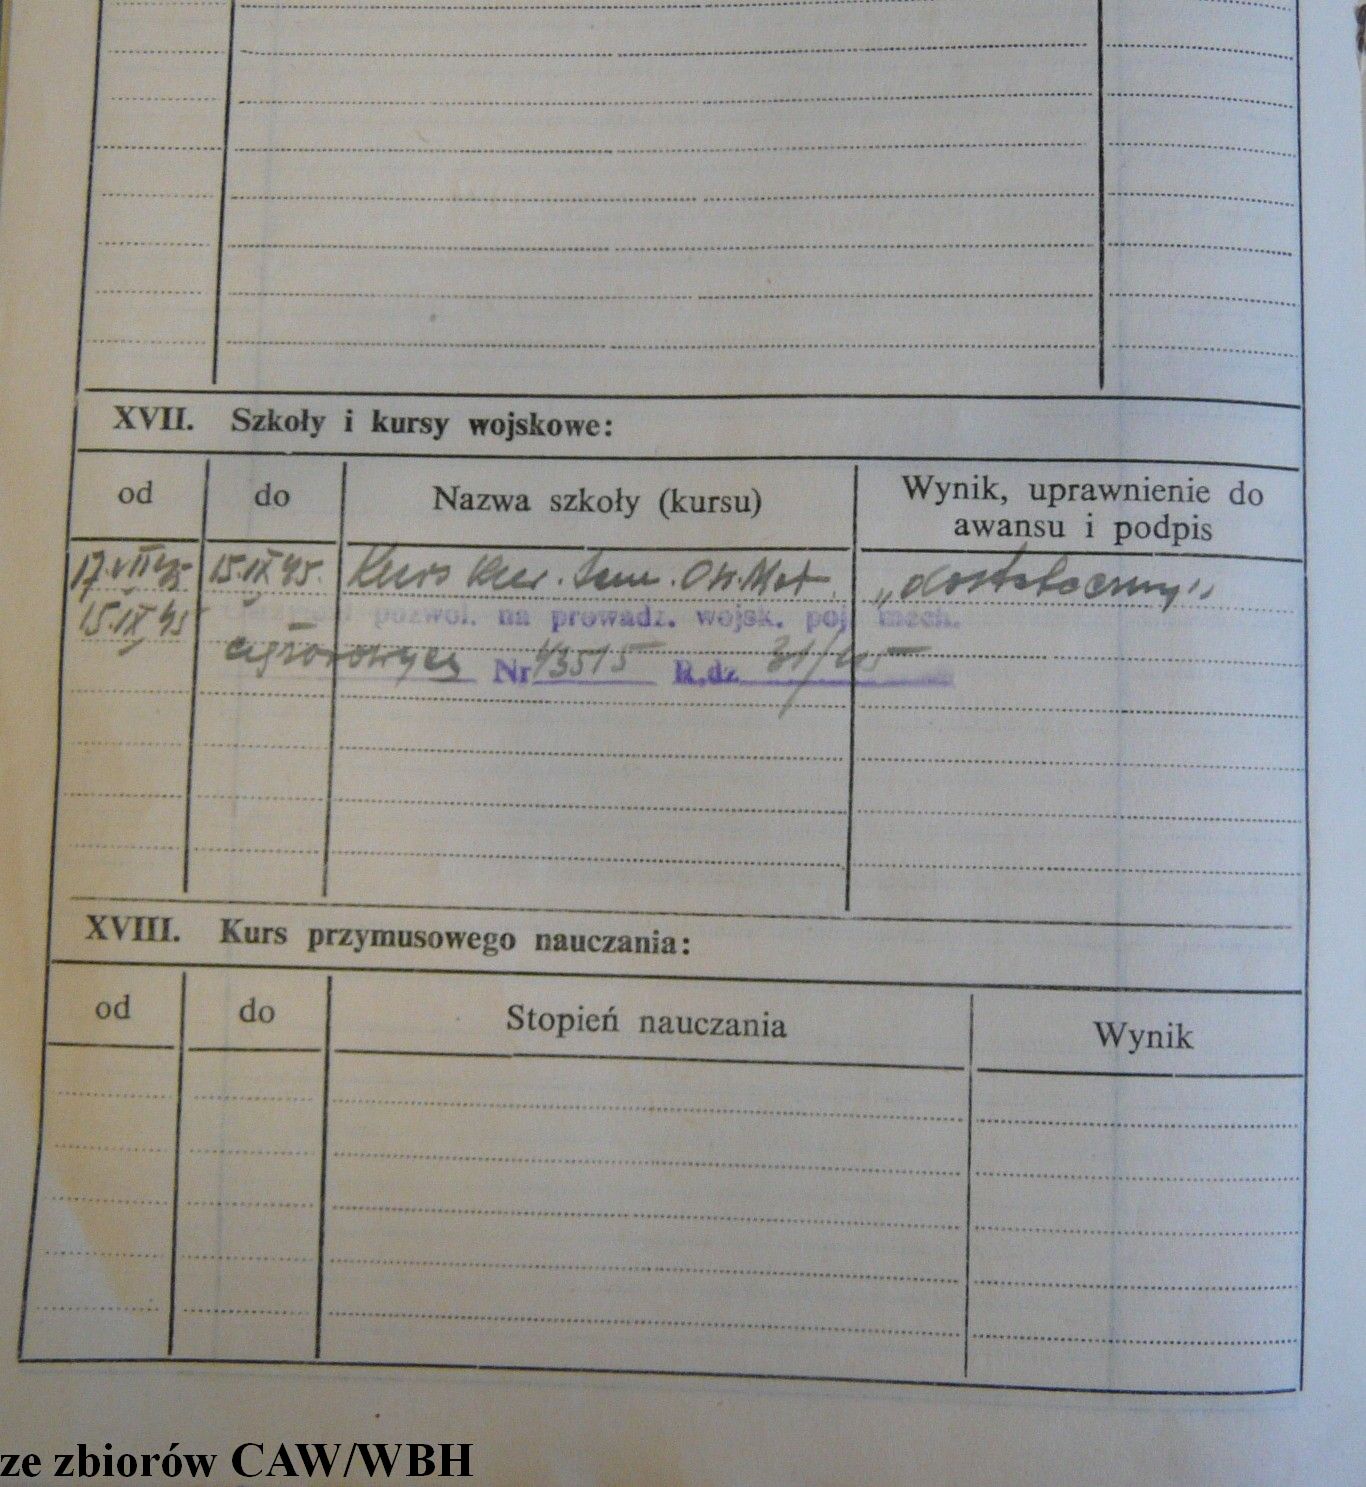 XVII. Szkoły i kursy wojskowe:
od do Nazwa szkoły (kursu) Wynik, uprawnienie do awansu i podpis
17.VII 45 15.IX 45. Kurs Kier. Sam. Ow. Mot. „dostateczny"
15.IX 45 pozwol. na prowadz. wojsk. poj. mech.
ciężarowych Nr 43515 R.dz. 31/45
XVIII. Kurs przymusowego nauczania:
od do Stopień nauczania Wynik
ze zbiorów CAW/WBH